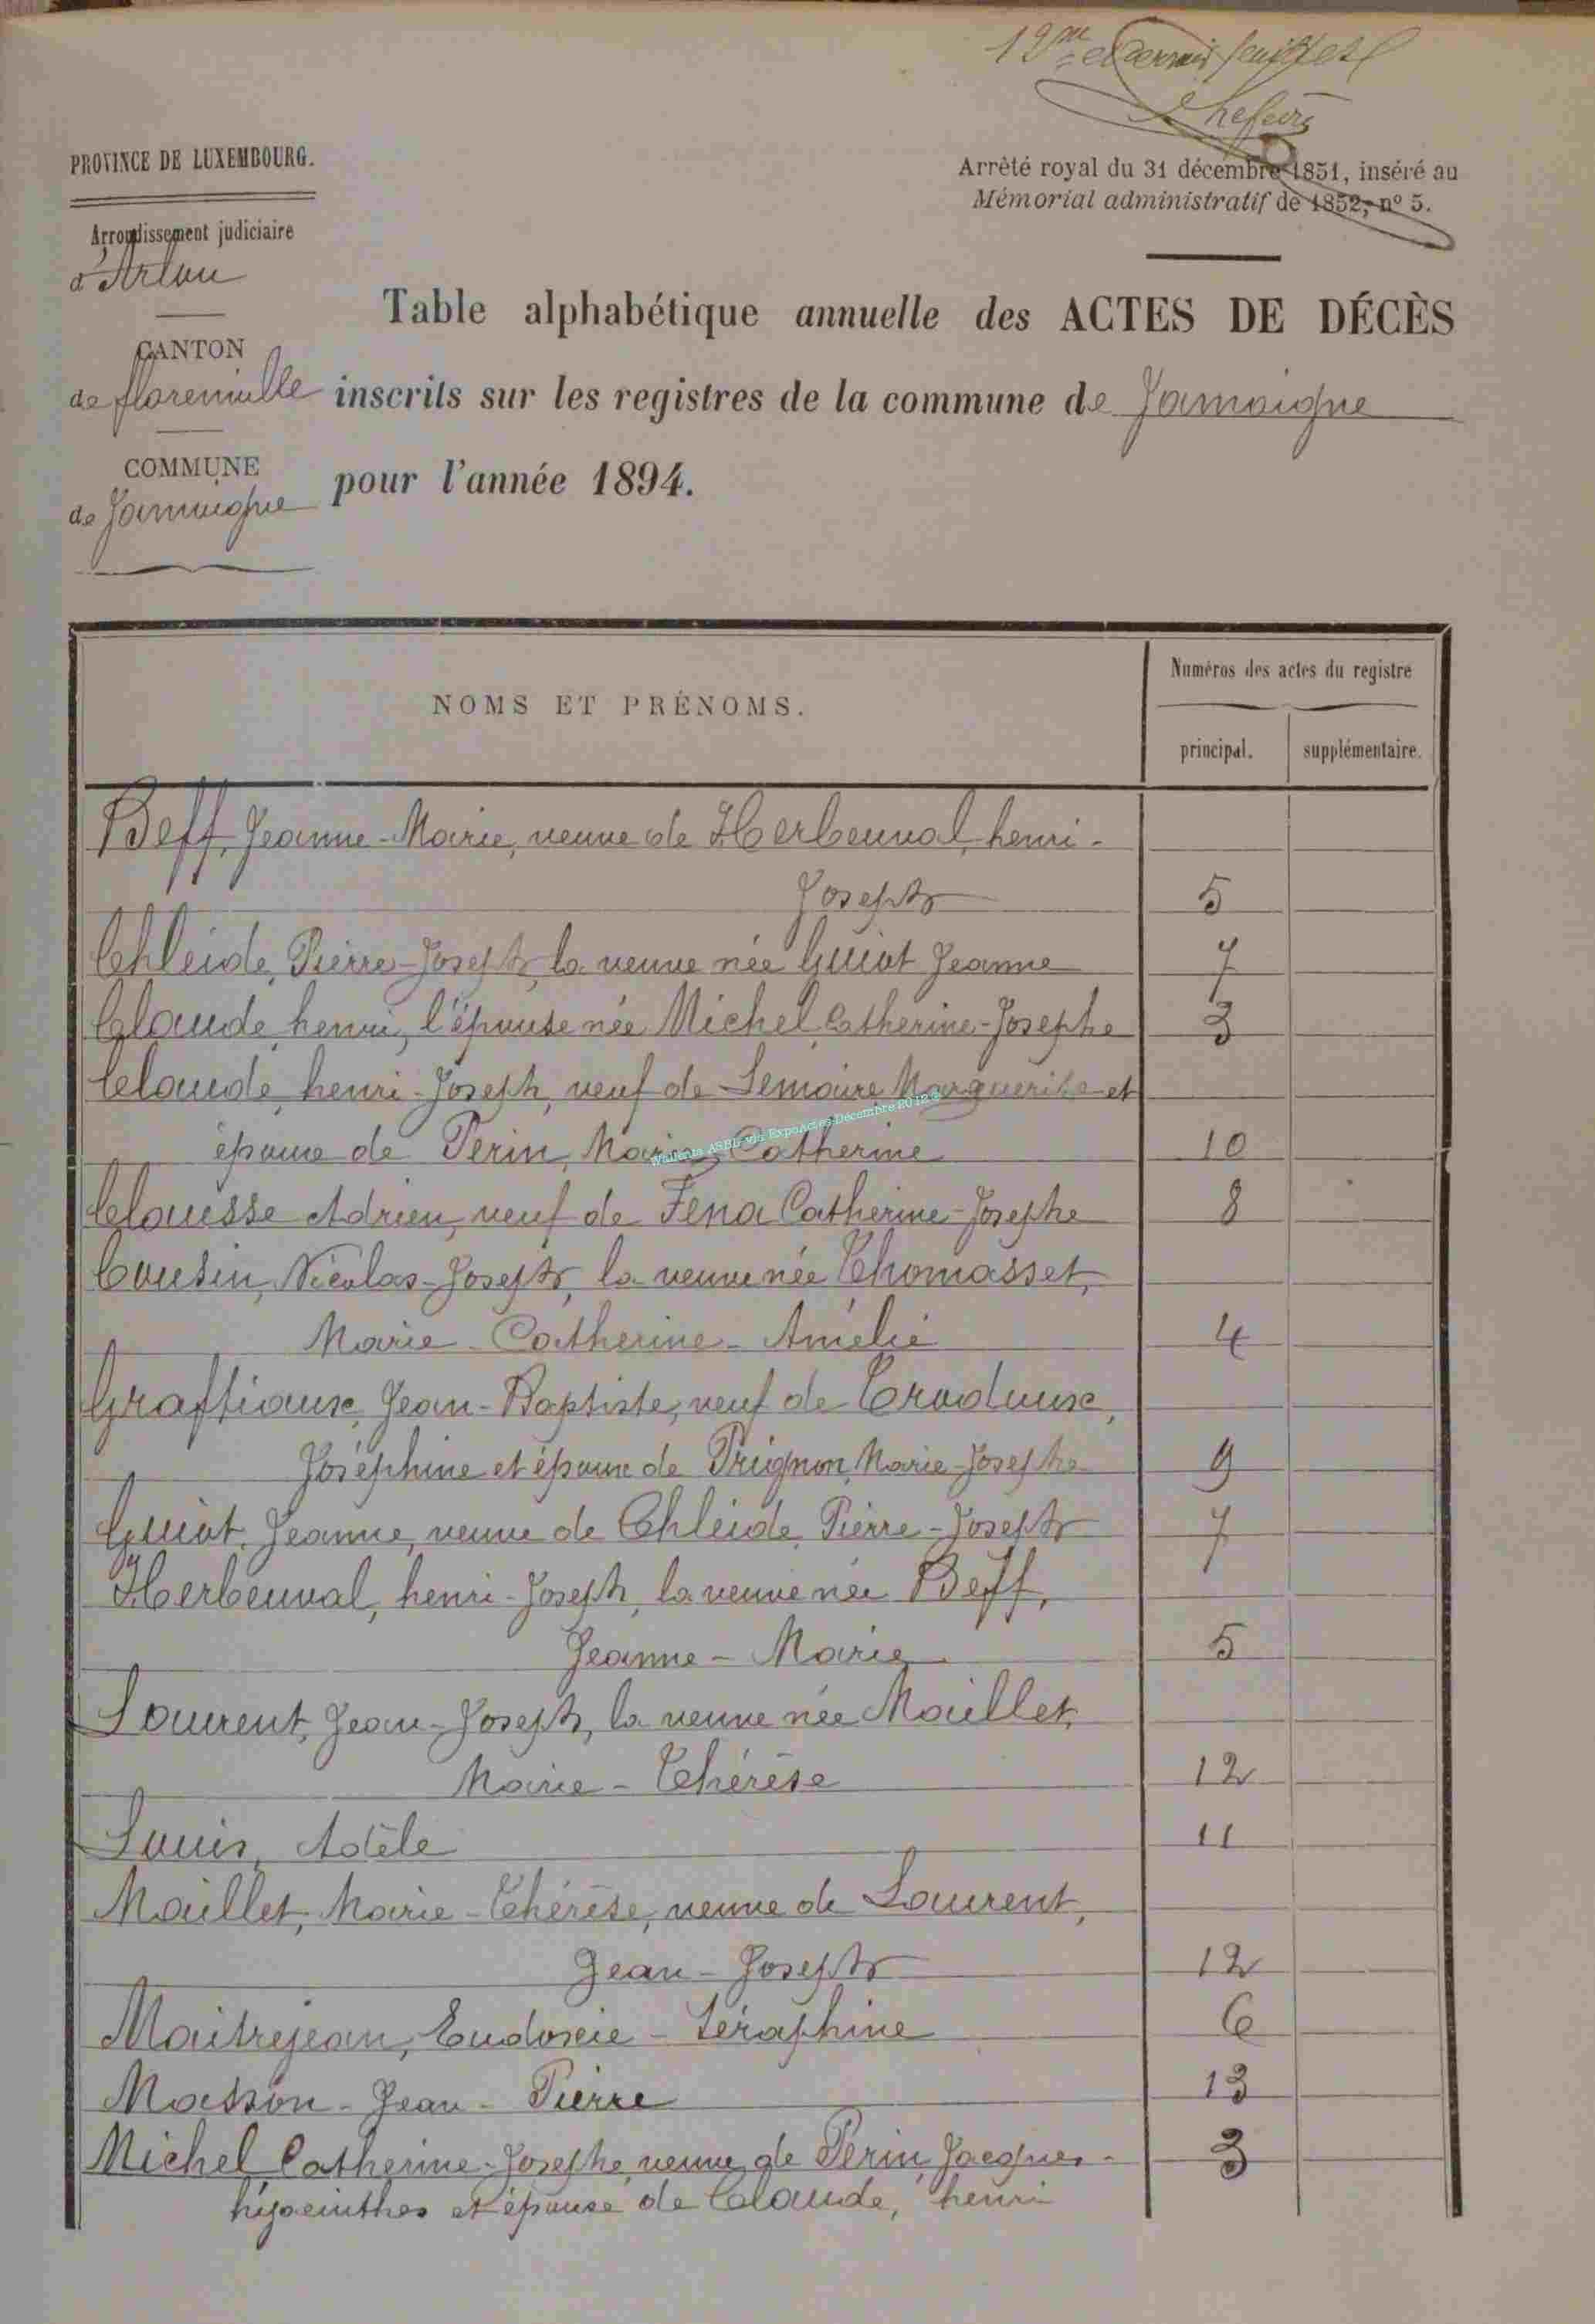 12me et dernier feuillet
PROVINCE DE LUXEMBOURG.
Arrêté royal du 31 décembre 1851, inséré au
Mémorial administratif de 1852, nº 5.
Arrondissement judiciaire
d'Arlon
Table alphabétique annuelle des ACTES DE DÉCÈS
CANTON
de florenville inscrits sur les registres de la commune de Jamoigne
COMMUNE
de Jamoigne pour l'année 1894.
NOMS ET PRÉNOMS.
Numéros des actes du registre
principal. supplémentaire.
Beff, Jeanne-Marie, veuve de Herbeuval, henri-
Joseph 5
Chleide, Pierre-Joseph, la veuve née Guiot Jeanne 7
Claude, henri, l'épouse née Michel, Catherine-Josephe 3
Claude, henri-Joseph, veuf de Lemaire, Marguerite et
époux de Perin, Marie-Catherine 10
Clausse Adrien, veuf de Fena Catherine-Josephe 8
Cousin, Nicolas-Joseph, la veuve née Thomasset,
Marie-Catherine-Amélie 4
Graftiaux, Jean-Baptiste, veuf de
Joséphine et époux de Prignon, Marie-Josephe 9
Guiot, Jeanne, veuve de Chleide, Pierre-Joseph 7
Herbeuval, henri-Joseph, la veuve née Beff,
Jeanne-Marie 5
Laurent, Jean-Joseph, la veuve née Maillet,
Marie-Thérèse 12
Louis, Adèle 11
Maillet, Marie-Thérèse, veuve de Laurent,
Jean-Joseph 12
Maitrejean, Eudoxie-Séraphine 6
Masson-Jean-Pierre 13
Michel, Catherine-Josephe, veuve de Perin, Jacques- 3
hyacinthes et épouse de Claude, henri